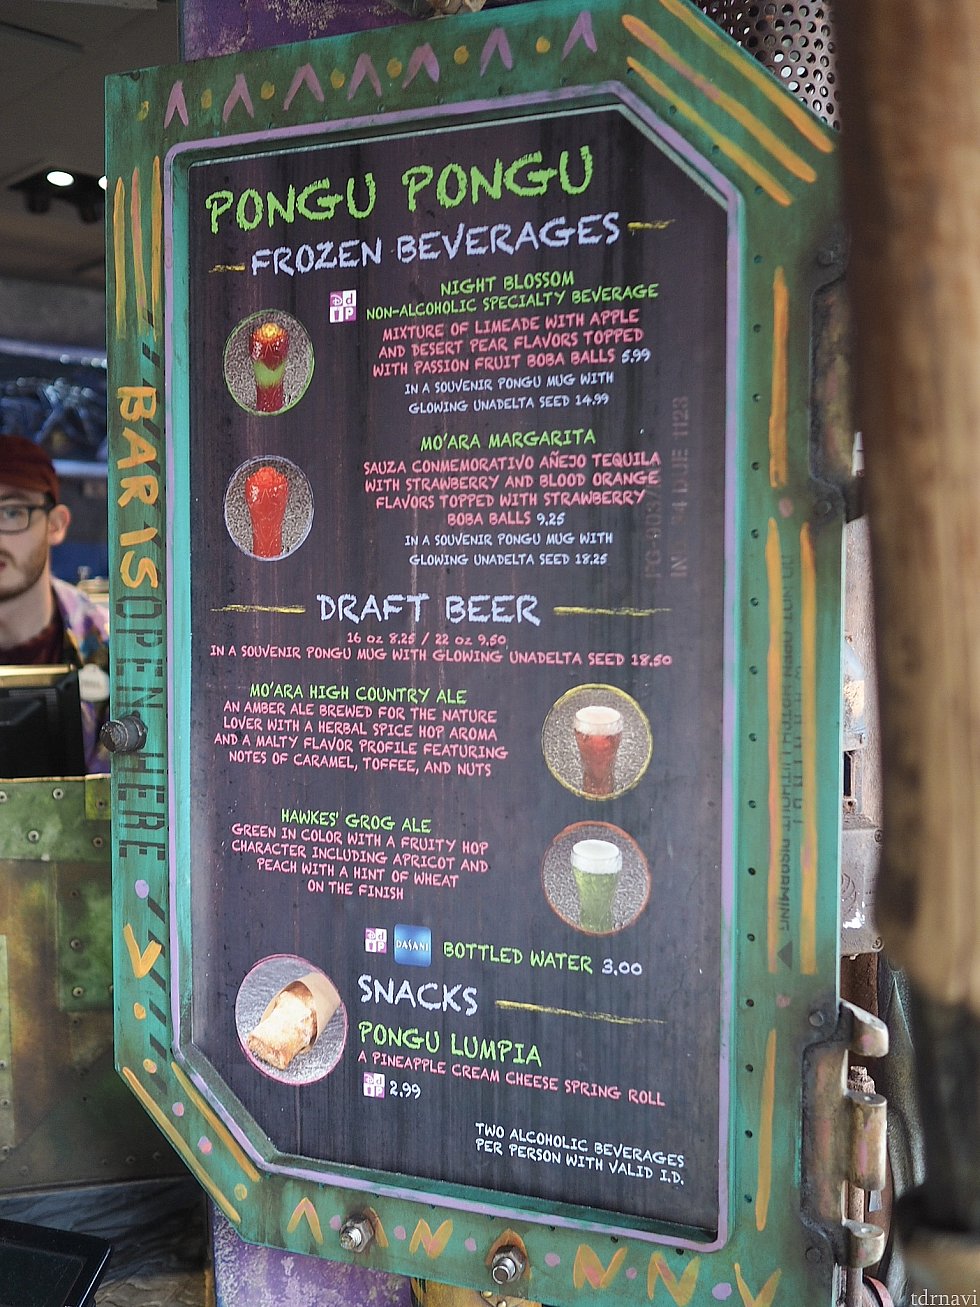 PONGU PONGU
FROZEN BEVERAGES
NIGHT BLOSSOM
NON-ALCOHOLIC SPECIALTY BEVERAGE
MIXTURE OF LIMEADE WITH APPLE
AND DESERT PEAR FLAVORS TOPPED
WITH PASSION FRUIT BOBA BALLS 5.99
IN A SOUVENIR PONGU MUG WITH
GLOWING UNADELTA SEED 14.99
MO'ARA MARGARITA
SAUZA CONMEMORATIVO AÑEJO TEQUILA
WITH STRAWBERRY AND BLOOD ORANGE
FLAVORS TOPPED WITH STRAWBERRY
BOBA BALLS 9.25
IN A SOUVENIR PONGU MUG WITH
GLOWING UNADELTA SEED 18.25
DRAFT BEER
16 oz 8.25 / 22 oz 9.50
IN A SOUVENIR PONGU MUG WITH GLOWING UNADELTA SEED 18.50
MO'ARA HIGH COUNTRY ALE
AN AMBER ALE BREWED FOR THE NATURE
LOVER WITH A HERBAL SPICE HOP AROMA
AND A MALTY FLAVOR PROFILE FEATURING
NOTES OF CARAMEL, TOFFEE, AND NUTS
HAWKES' GROG ALE
GREEN IN COLOR WITH A FRUITY HOP
CHARACTER INCLUDING APRICOT AND
PEACH WITH A HINT OF WHEAT
ON THE FINISH
DASANI
BOTTLED WATER 3.00
SNACKS
PONGU LUMPIA
A PINEAPPLE CREAM CHEESE SPRING ROLL
2.99
TWO ALCOHOLIC BEVERAGES
PER PERSON WITH VALID I.D.
BAR IS OPEN HERE
tdrnavi